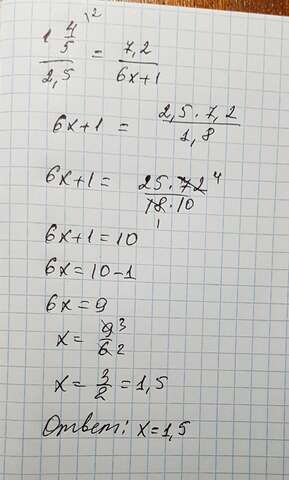 1 4/5 \2 / 2,5 = 7,2 / 6x+1
6x+1 = 2,5 · 7,2 / 1,8
6x+1 = 25 · 72 4 / 18 · 10 1
6x+1=10
6x=10-1
6x=9
x= 9 3 / 6 2
x= 3/2 =1,5
Ответ: x=1,5